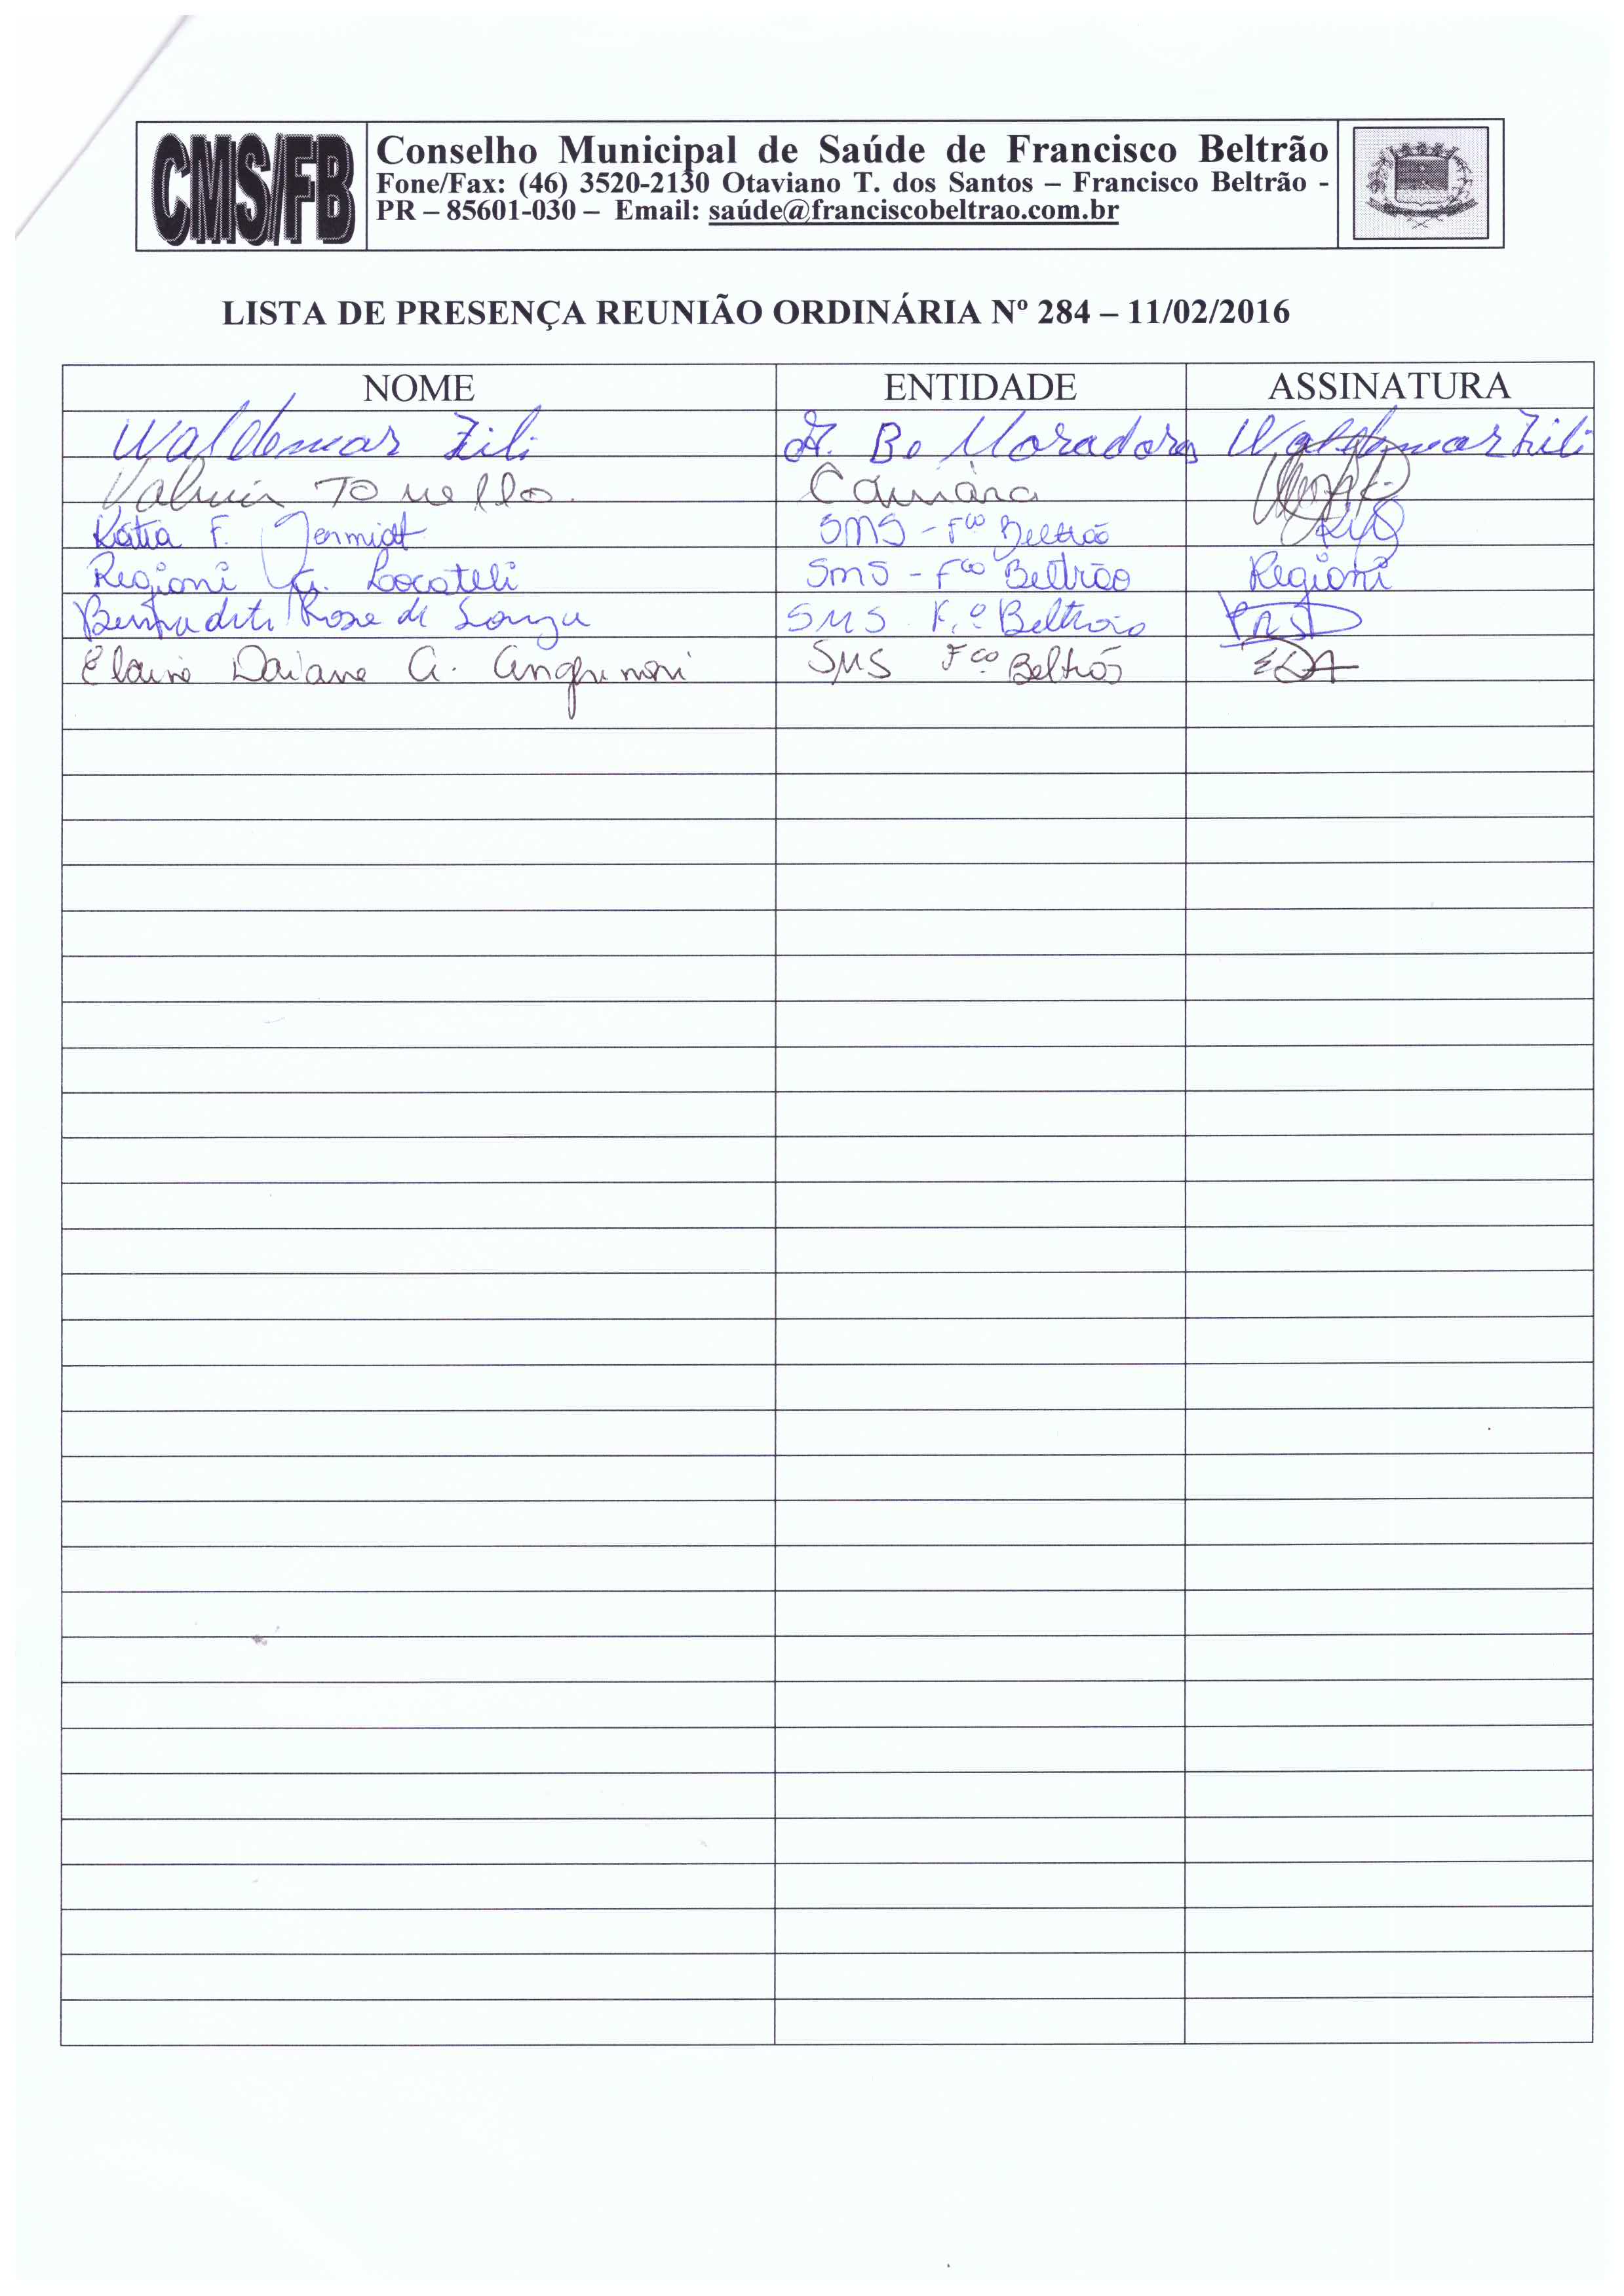 CMS/FB
Conselho Municipal de Saúde de Francisco Beltrão
Fone/Fax: (46) 3520-2130 Otaviano T. dos Santos – Francisco Beltrão -
PR – 85601-030 – Email: saúde@franciscobeltrao.com.br
LISTA DE PRESENÇA REUNIÃO ORDINÁRIA Nº 284 – 11/02/2016
NOME ENTIDADE ASSINATURA
Waldemar Zili Moradores Waldemar Zili
Valmir Tonello. Câmara
Kátia F. SMS - Fco Beltrão
Regioni G. Locateli SMS - Fco Beltrão Regioni
Rose de Souza SMS Fº Beltrão
Elaine Daiane A. SMS Fco Beltrão EDA